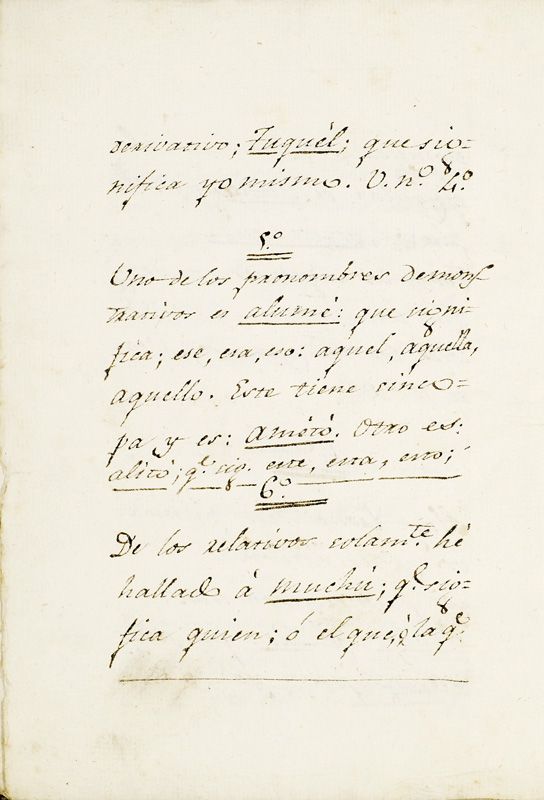 derivativo; Fuquèl; que sig-
nifica yo mismo. V. nº. 4º.
5.º
Uno de los pronombres demons
trativos es alumè: que signi-
fica; ese, esa, eso: aquel, aquella,
aquello. Este tiene sinco-
pa y es: Amètò. Otro es:
alitò; q.e sig. este, esta, esto;
6.º
De los relativos solam.te hè
hallado à muchù; q.e sig-
fica quien; ó el que, ò la q.e